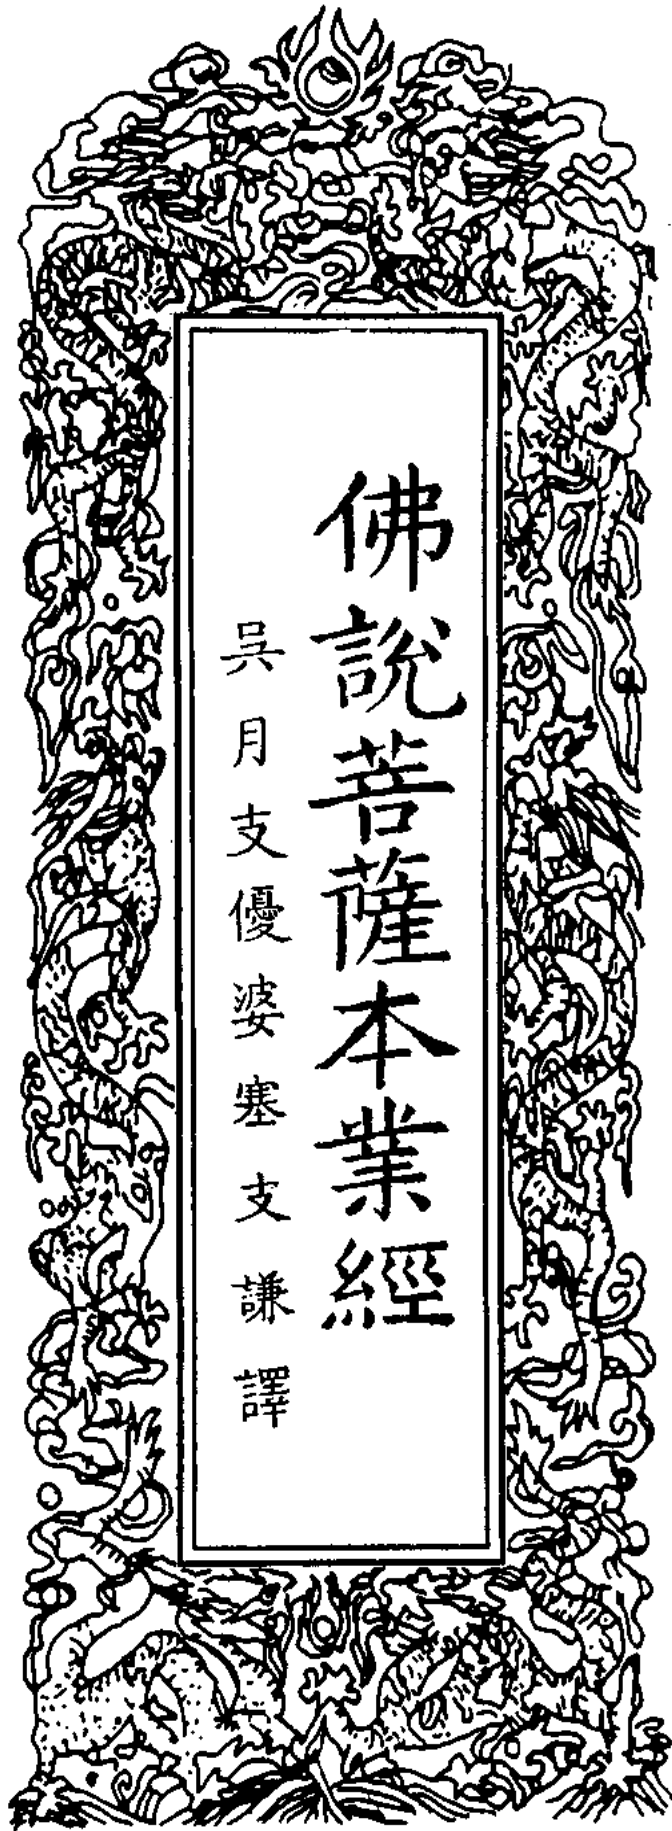 佛說菩薩本業經
吳月支優婆塞支謙譯